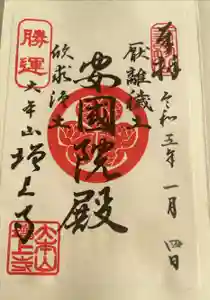 奉拝
令和五年一月四日
厭離穢土
欣求浄土
安國院殿
勝運
大本山増上寺
大本山
増上寺